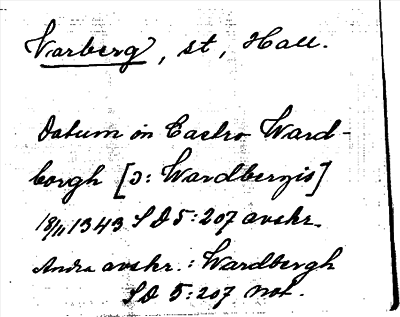 Varberg, st, Hall.
Datum in Castro Ward-
borgh [ɔ: Wardbergis]
18/11 1343 SD 5:207 avskr.
Andra avskr.: Wardbergh
SD 5:207 not.